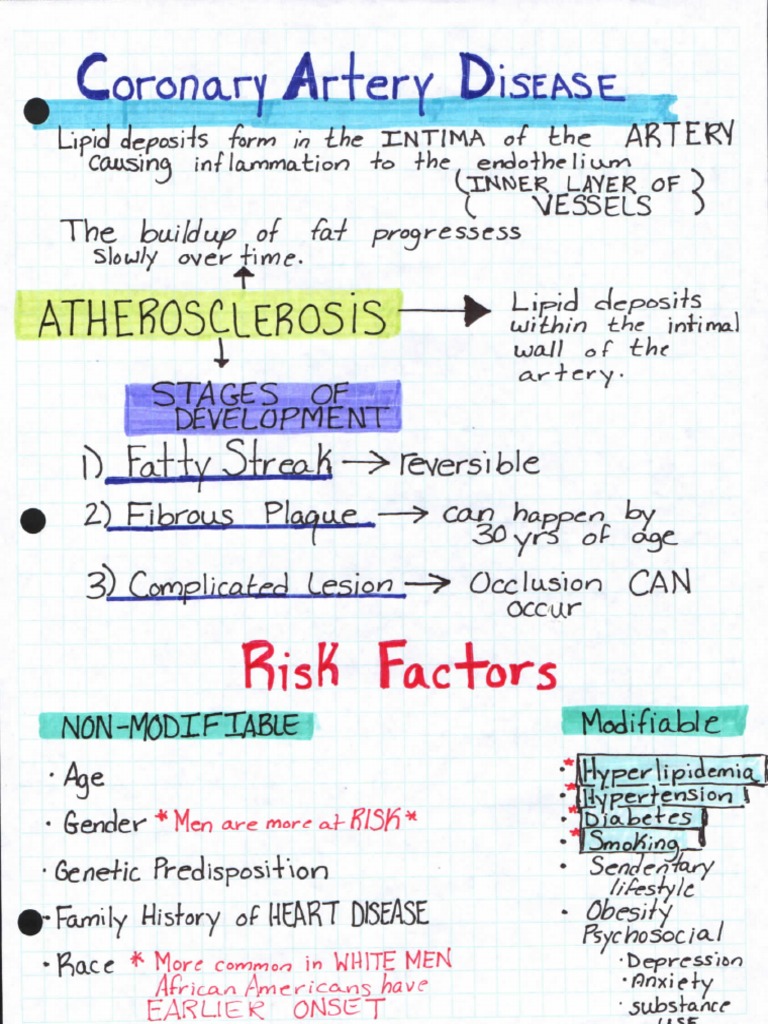 Coronary Artery Disease
Lipid deposits form in the INTIMA of the ARTERY
causing inflammation to the endothelium
(INNER LAYER OF
VESSELS)
The buildup of fat progressess
slowly over time.
ATHEROSCLEROSIS
Lipid deposits
within the intimal
wall of the
artery.
STAGES OF
DEVELOPMENT
1) Fatty Streak → reversible
2) Fibrous Plaque → can happen by
30 yrs of age
3) Complicated Lesion → Occlusion CAN
occur
Risk Factors
NON-MODIFIABLE
· Age
· Gender *Men are more at RISK*
· Genetic Predisposition
· Family History of HEART DISEASE
· Race * More common in WHITE MEN
African Americans have
EARLIER ONSET
Modifiable
* · Hyperlipidemia
* · Hypertension
* · Diabetes
* · Smoking
· Sendentary
lifestyle
· Obesity
Psychosocial
· Depression
· Anxiety
· substance
use